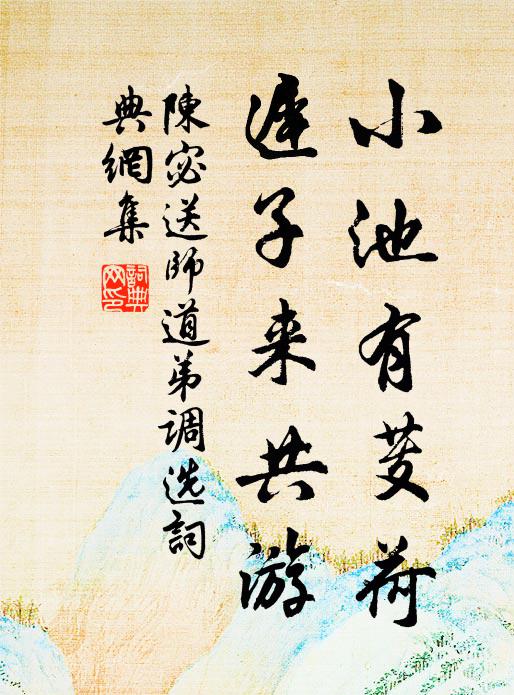 小池有芰荷
遲子来共游
陳宓送師道弟調选詞
典網集
詞典
网印